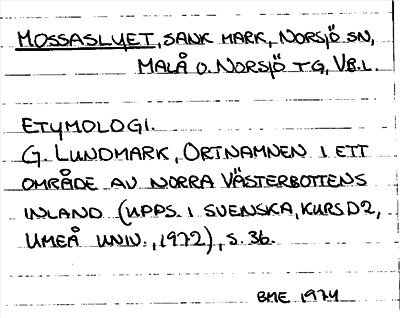 MOSSASLYET, SANK MARK, NORSJÖ SN,
MALÅ O. NORSJÖ T.G, VB.L.
ETYMOLOGI.
G. LUNDMARK, ORTNAMNEN I ETT
OMRÅDE AV NORRA VÄSTERBOTTENS
INLAND (UPPS. I SVENSKA, KURS D2,
UMEÅ UNIV., 1972), S. 36.
BME 1974